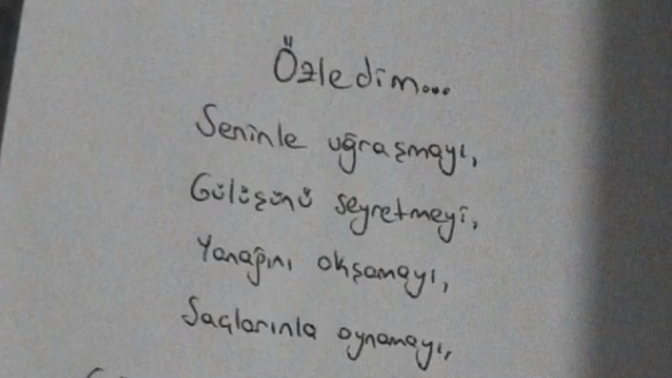 Özledim...
Seninle uğraşmayı,
Gülüşünü seyretmeyi,
Yanağını okşamayı,
Saçlarınla oynamayı,